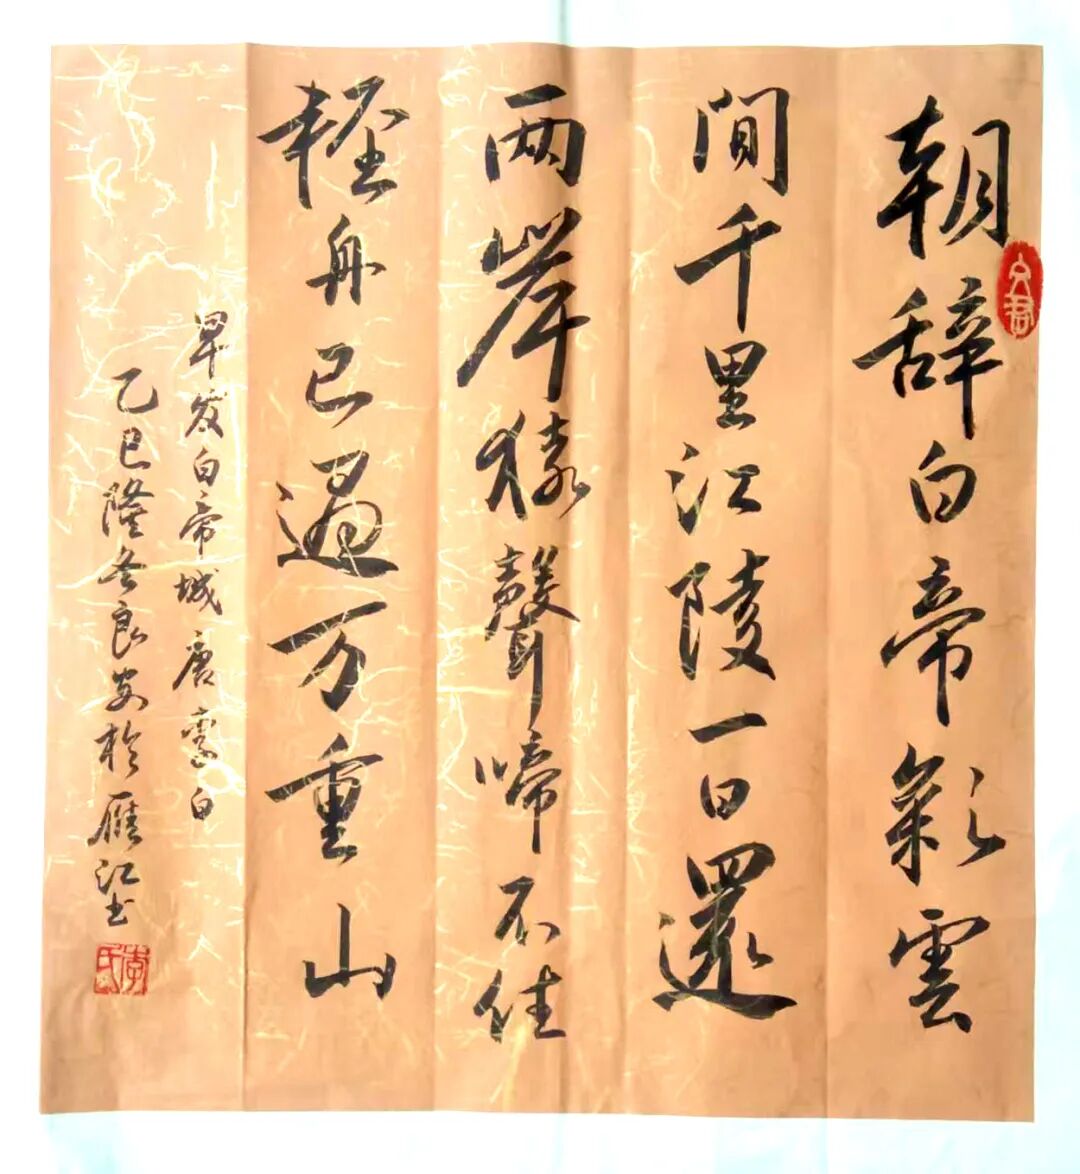 朝辞白帝彩雲
間千里江陵一日還
两岸猿聲啼不住
輕舟已過万重山
早发白帝城唐李白
乙巳隆冬良安於雁江书
文君
李氏